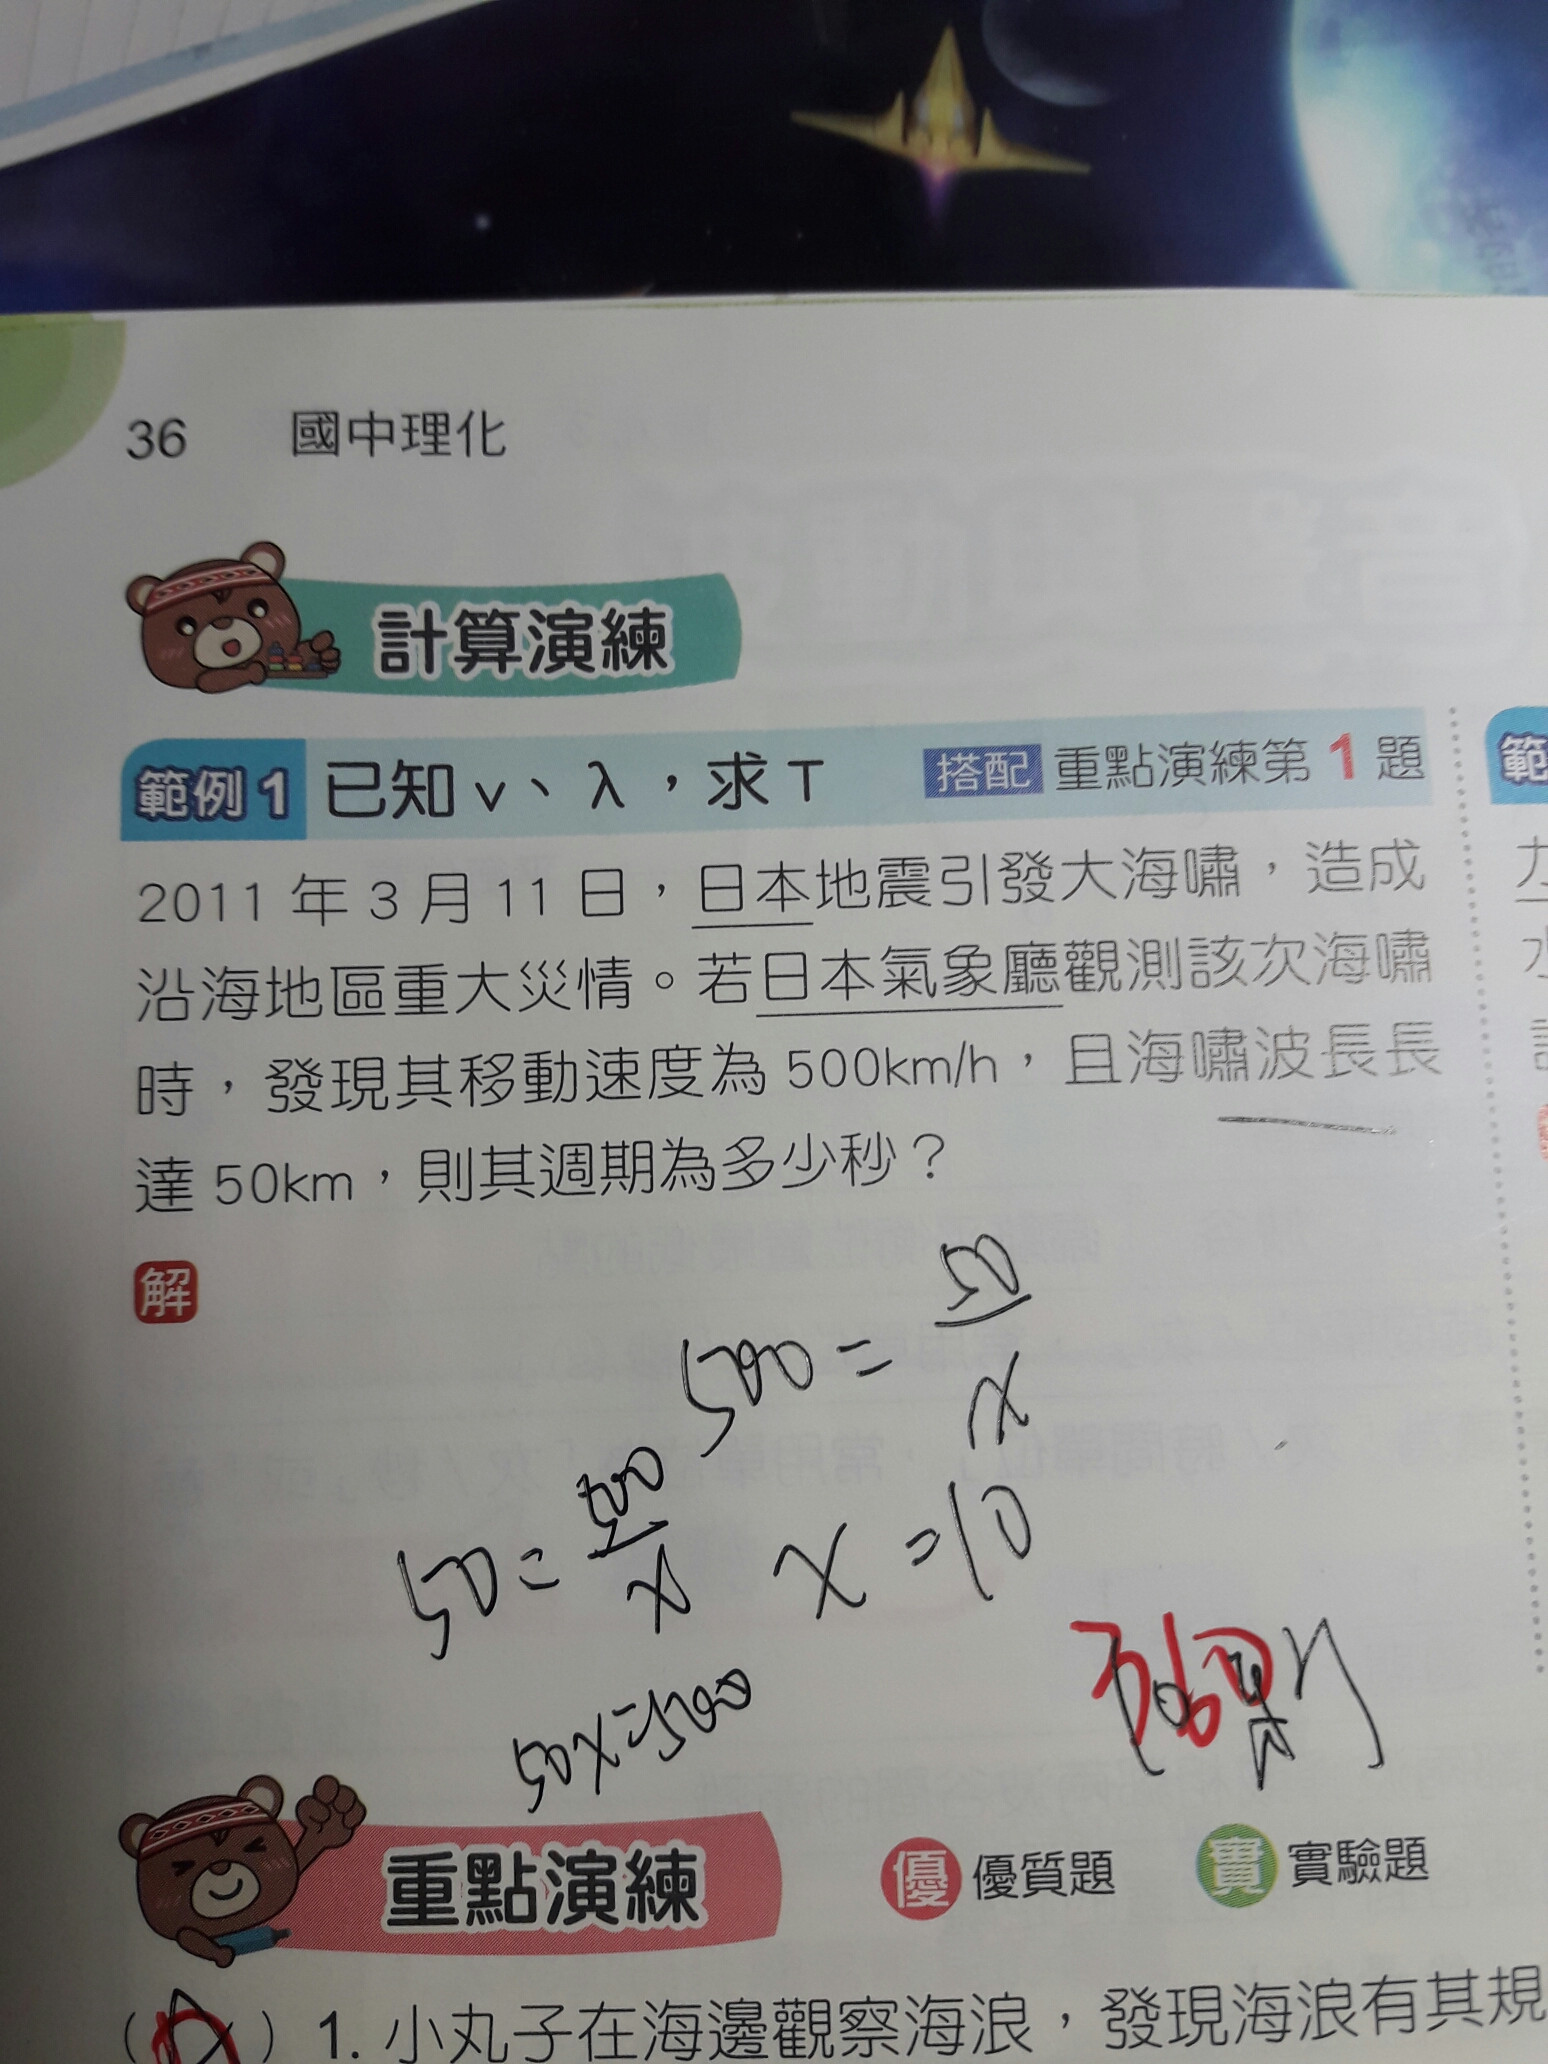 36 國中理化
計算演練
範例1 已知v、λ，求T 搭配 重點演練第1題
2011年3月11日，日本地震引發大海嘯，造成
沿海地區重大災情。若日本氣象廳觀測該次海嘯
時，發現其移動速度為500km/h，且海嘯波長長
達50km，則其週期為多少秒？
解
500 = 50/x
50 = 500/x
x = 10
50x=500
重點演練 優 優質題 實 實驗題
1. 小丸子在海邊觀察海浪，發現海浪有其規